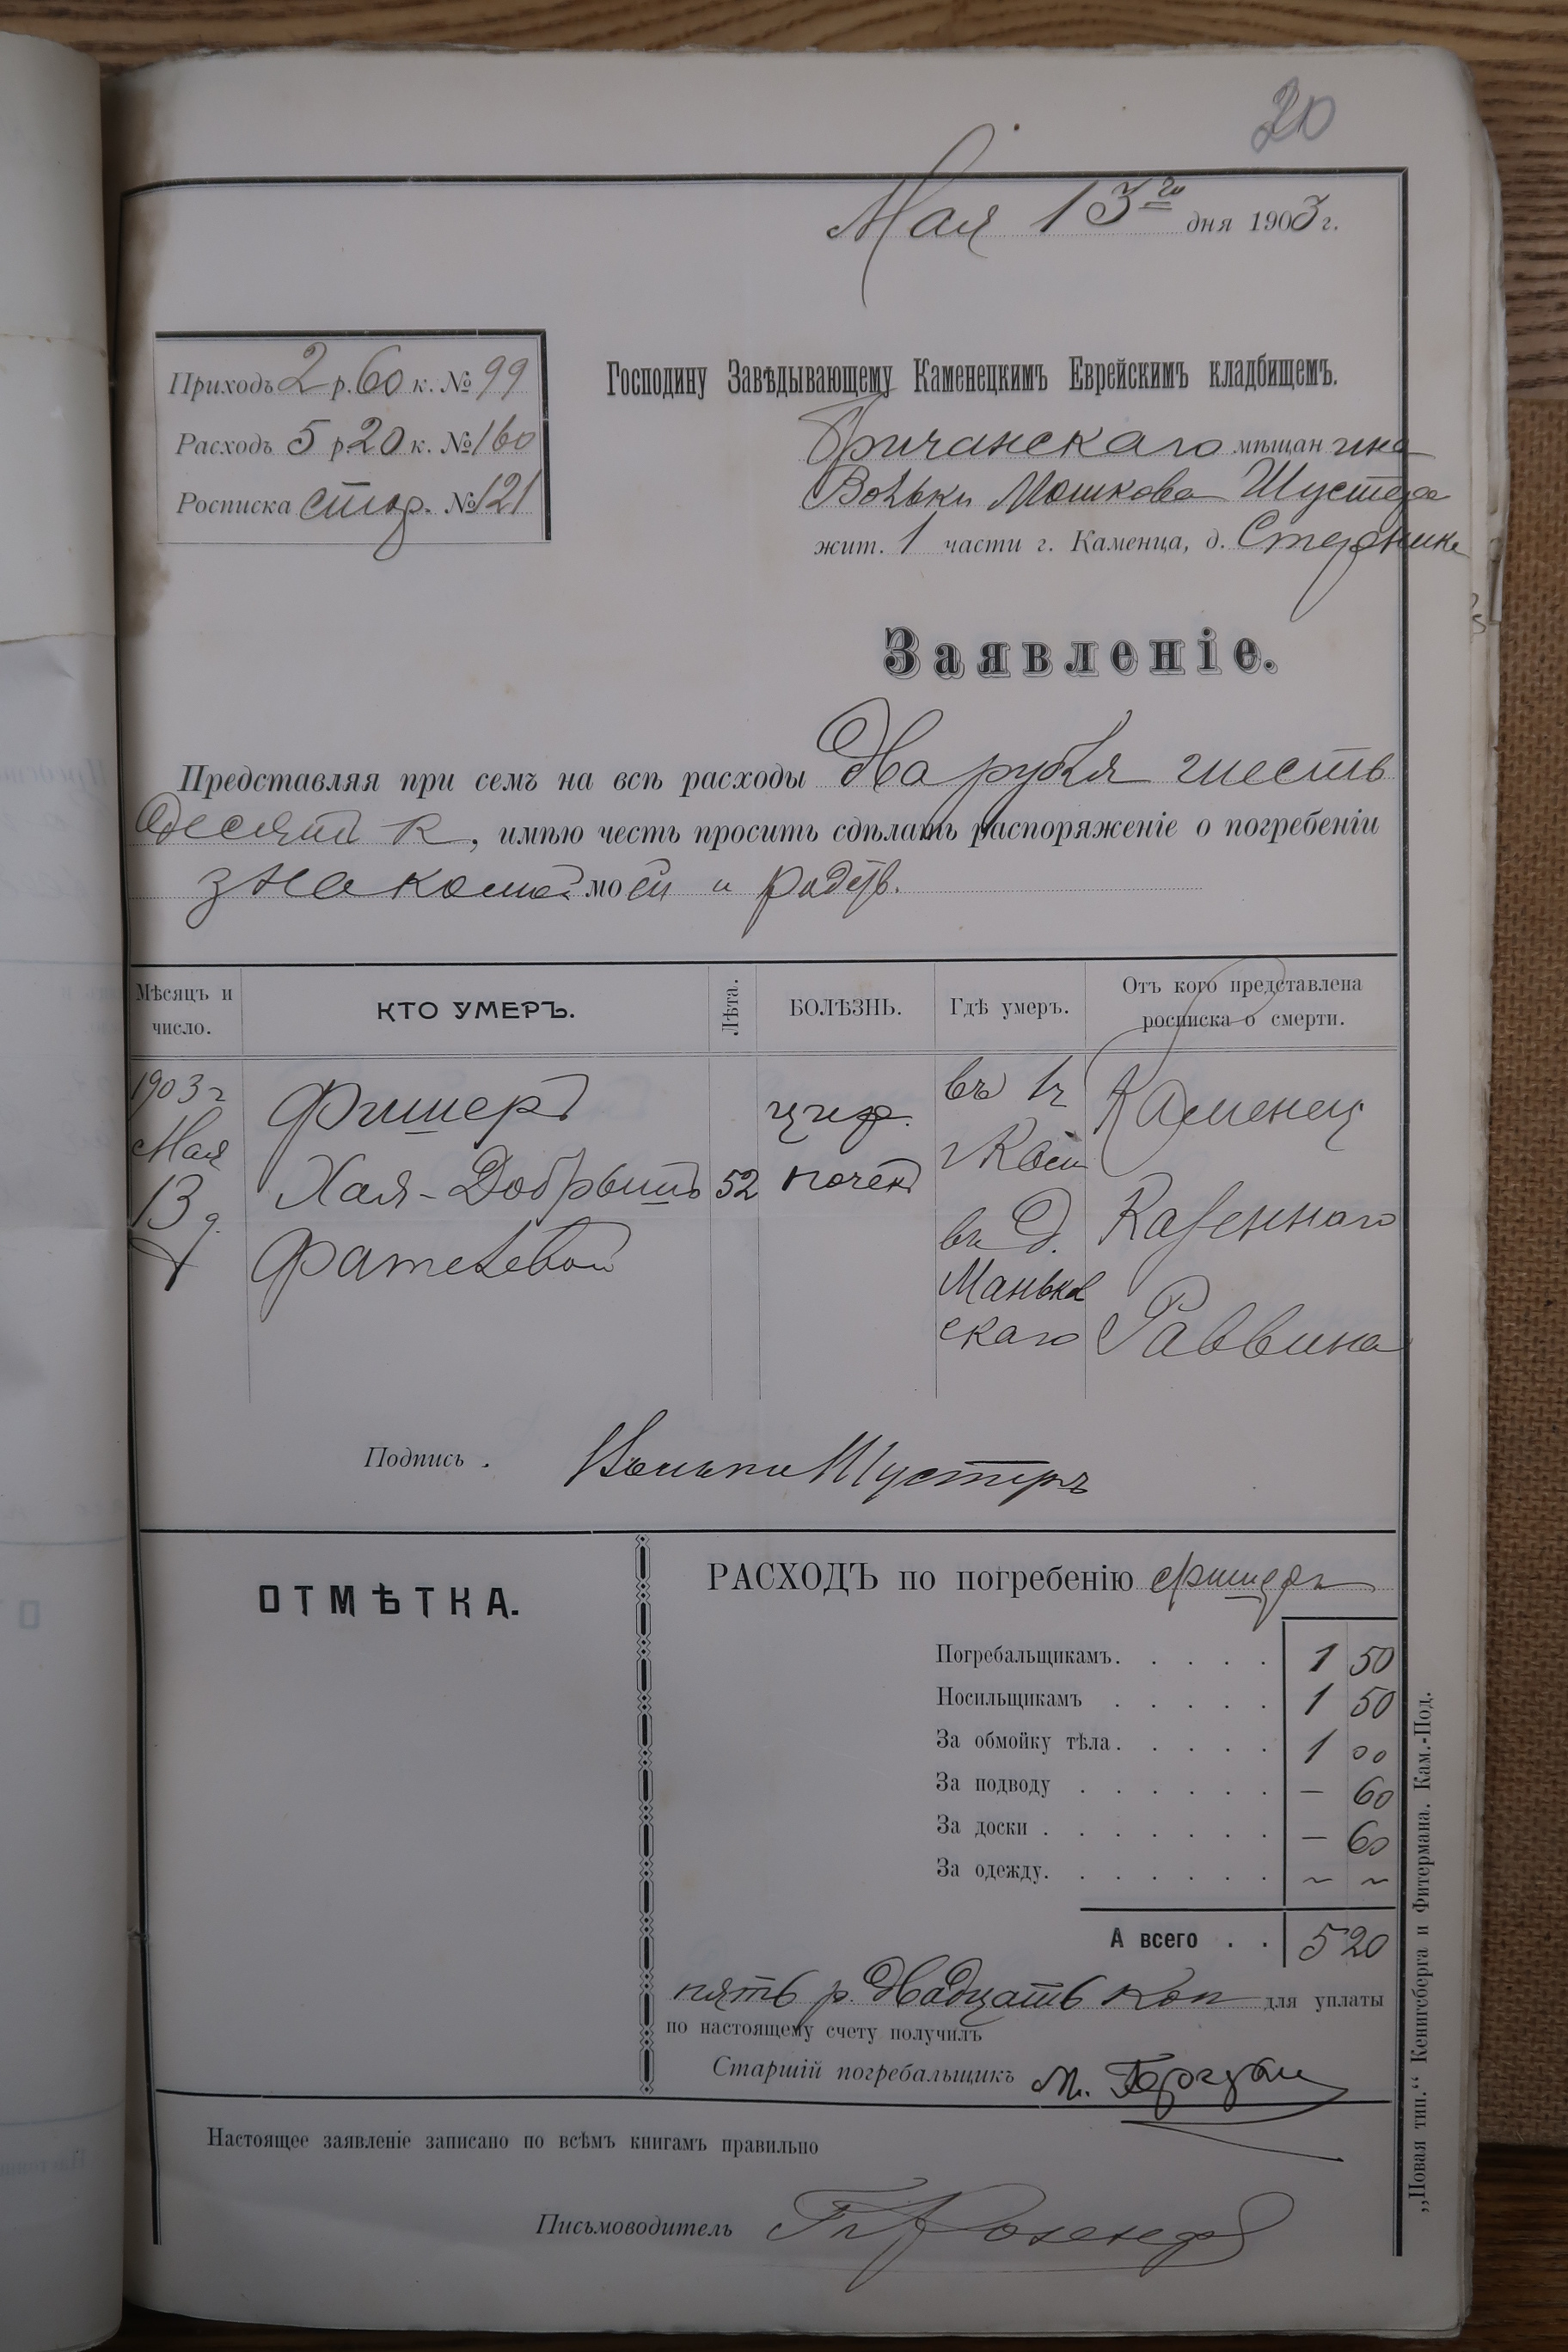 20
Мая 13го дня 1903 г.
Приходъ 2 р. 60 к. № 99
Расходъ 5 р. 20 к. № 160
Росписка стор. № 121
Господину Завѣдывающему Каменецкимъ Еврейскимъ кладбищемъ.
Бричанскаго мѣщанина
Вольки Мошкова Шустера
жит. 1 части г. Каменца, д.
Заявленіе.
Представляя при семъ на всѣ расходы Два рубля шесть
десятъ к, имѣю честь просить сдѣлать распоряженіе о погребеніи
знакомой моей и
Мѣсяцъ и число. КТО УМЕРЪ. Лѣта. БОЛѢЗНЬ. Гдѣ умеръ. Отъ кого представлена росписка о смерти.
1903 г Мая 13 д.
Фишеръ
Хая-Добрышъ
Фателевой
52
цир.
почек
въ 1 ч
г Кам
въ д.
Маньков
скаго
Каменец
Казеннаго
Раввина
Подпись. Волька Шустеръ
ОТМѢТКА.
РАСХОДЪ по погребенію Фишеръ
Погребальщикамъ. . . . . 1 50
Носильщикамъ . . . . . 1 50
За обмойку тѣла. . . . . 1 00
За подводу . . . . . . — 60
За доски . . . . . . . — 60
За одежду. . . . . . . ~ ~
А всего . . 5 20
пять р. двадцать коп для уплаты
по настоящему счету получилъ
Старшій погребальщикъ М.
Настоящее заявленіе записано по всѣмъ книгамъ правильно
Письмоводитель
„Новая тип.“ Кенигсберга и Фитермана. Кам.-Под.